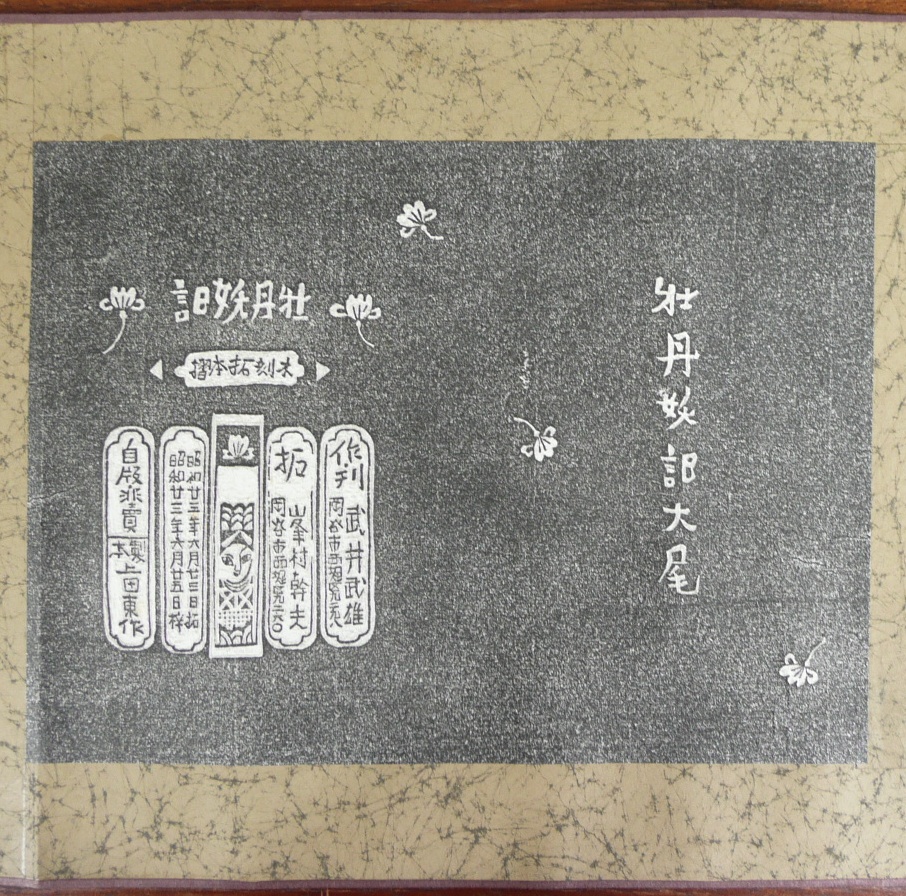 牡丹妖記大尾
牡丹妖記
木刻拓本摺
作刊 武井武雄
岡谷市西堀
拓 峯村幹夫
岡谷市西堀
昭和廿三年六月廿三日拓
昭和廿三年六月廿五日梓
自版非賣
製本 上田東作